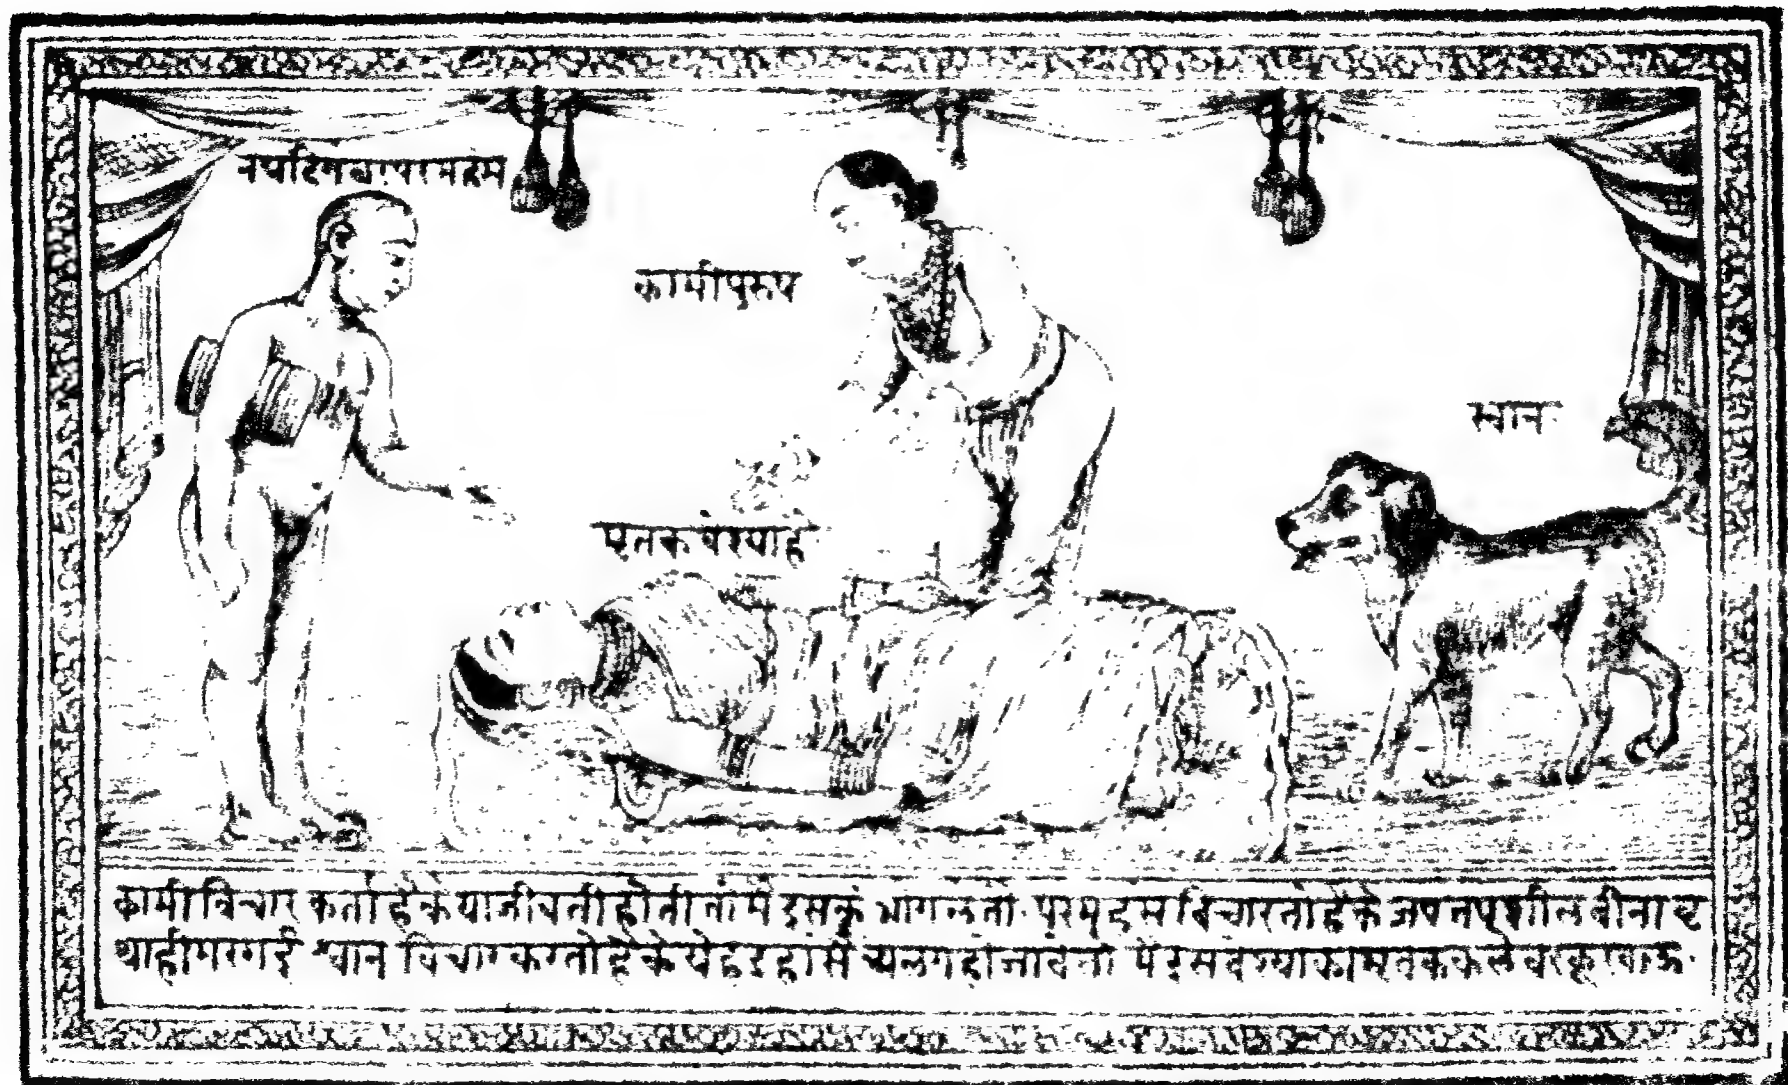 कामीपुरुष
स्वान
मृतकवेश्याहै
कामी विचार कर्ता है के या जीवती होती तो मे इसकुं भोगलेतो परमहंस विचारतो है के जप तप शील वीना
थाही मरगई श्वान विचार करतो है के येह इहां से अलग हो जावे तो मे इस वेश्या का मृतक कलेवर कू खाऊ